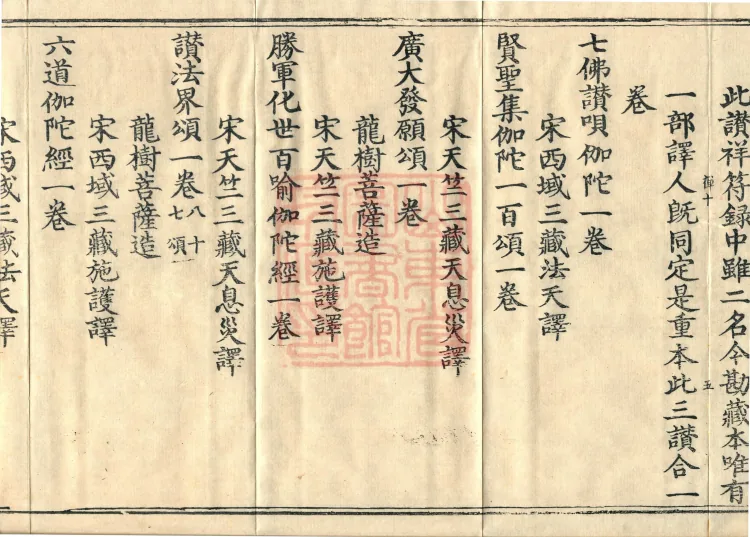 此讃祥符録中雖二名今勘藏本唯有
五
一部譯人既同定是重本此三讃合一
卷
七佛讃唄伽陀一卷
宋西域三藏法天譯
賢聖集伽陀一百頌一卷
宋天竺三藏天息災譯
廣大發願頌一卷
龍樹菩薩造
宋天竺三藏施護譯
勝軍化世百喻伽陀經一卷
宋天竺三藏天息災譯
讃法界頌一卷八十七頌
龍樹菩薩造
宋西域三藏施護譯
六道伽陀經一卷
宋西域三藏法天譯